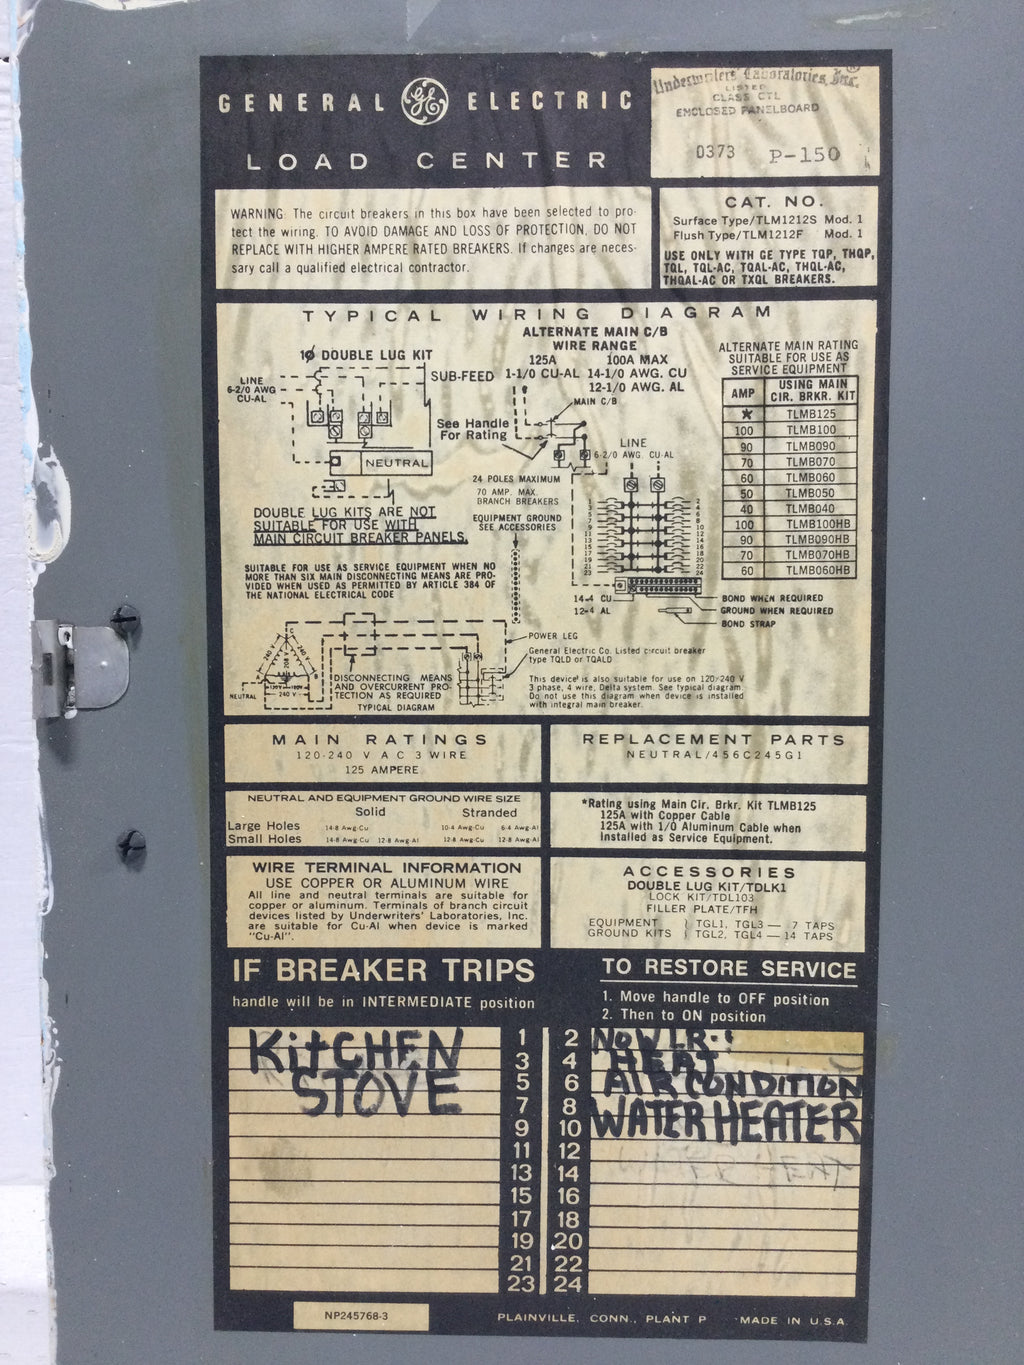 GENERAL GE ELECTRIC
LOAD CENTER
Underwriters' Laboratories, Inc.
LISTED
CLASS CTL
ENCLOSED PANELBOARD
0373 P-150
WARNING The circuit breakers in this box have been selected to pro-
tect the wiring. TO AVOID DAMAGE AND LOSS OF PROTECTION, DO NOT
REPLACE WITH HIGHER AMPERE RATED BREAKERS. If changes are neces-
sary call a qualified electrical contractor.
CAT. NO.
Surface Type/TLM1212S Mod. 1
Flush Type/TLM1212F Mod. 1
USE ONLY WITH GE TYPE TQP, THQP,
TQL, TQL-AC, TQAL-AC, THQL-AC,
THQAL-AC OR TXQL BREAKERS.
TYPICAL WIRING DIAGRAM
1Ø DOUBLE LUG KIT
LINE
6-2/0 AWG
CU-AL
SUB-FEED
NEUTRAL
DOUBLE LUG KITS ARE NOT
SUITABLE FOR USE WITH
MAIN CIRCUIT BREAKER PANELS.
SUITABLE FOR USE AS SERVICE EQUIPMENT WHEN NO
MORE THAN SIX MAIN DISCONNECTING MEANS ARE PRO-
VIDED WHEN USED AS PERMITTED BY ARTICLE 384 OF
THE NATIONAL ELECTRICAL CODE
ALTERNATE MAIN C/B
WIRE RANGE
125A 100A MAX
1-1/0 CU-AL 14-1/0 AWG. CU
12-1/0 AWG. AL
MAIN C/B
See Handle
For Rating
LINE
6-2/0 AWG. CU-AL
24 POLES MAXIMUM
70 AMP. MAX.
BRANCH BREAKERS
EQUIPMENT GROUND
SEE ACCESSORIES
1 2
3 4
5 6
7 8
9 10
11 12
13 14
15 16
17 18
19 20
21 22
23 24
14-4 CU
12-4 AL
BOND WHEN REQUIRED
GROUND WHEN REQUIRED
BOND STRAP
ALTERNATE MAIN RATING
SUITABLE FOR USE AS
SERVICE EQUIPMENT
AMP USING MAIN CIR. BRKR. KIT
★ TLMB125
100 TLMB100
90 TLMB090
70 TLMB070
60 TLMB060
50 TLMB050
40 TLMB040
100 TLMB100HB
90 TLMB090HB
70 TLMB070HB
60 TLMB060HB
C
240 V 208 V 240 V
A B
120V 120V
240 V
NEUTRAL
DISCONNECTING MEANS
AND OVERCURRENT PRO-
TECTION AS REQUIRED
TYPICAL DIAGRAM
POWER LEG
General Electric Co. Listed circuit breaker
type TQLD or TQALD
This device is also suitable for use on 120/240 V
3 phase, 4 wire, Delta system. See typical diagram.
Do not use this diagram when device is installed
with integral main breaker.
MAIN RATINGS
120-240 V AC 3 WIRE
125 AMPERE
REPLACEMENT PARTS
NEUTRAL/456C245G1
NEUTRAL AND EQUIPMENT GROUND WIRE SIZE
Solid Stranded
Large Holes 14-8 Awg-Cu 10-4 Awg-Cu 6-4 Awg-Al
Small Holes 14-8 Awg-Cu 12-8 Awg-Al 12-8 Awg-Cu 12-8 Awg-Al
*Rating using Main Cir. Brkr. Kit TLMB125
125A with Copper Cable
125A with 1/0 Aluminum Cable when
Installed as Service Equipment.
WIRE TERMINAL INFORMATION
USE COPPER OR ALUMINUM WIRE
All line and neutral terminals are suitable for
copper or aluminum. Terminals of branch circuit
devices listed by Underwriters' Laboratories, Inc.
are suitable for Cu-Al when device is marked
"Cu-Al".
ACCESSORIES
DOUBLE LUG KIT/TDLK1
LOCK KIT/TDL103
FILLER PLATE/TFH
EQUIPMENT } TGL1, TGL3 — 7 TAPS
GROUND KITS } TGL2, TGL4 — 14 TAPS
IF BREAKER TRIPS
handle will be in INTERMEDIATE position
TO RESTORE SERVICE
1. Move handle to OFF position
2. Then to ON position
KiTCHEN
STOVE
1 2
3 4
5 6
7 8
9 10
11 12
13 14
15 16
17 18
19 20
21 22
23 24
HEAT
AIR CONDITION
WATER HEATER
NP245768-3
PLAINVILLE, CONN., PLANT P MADE IN U.S.A.